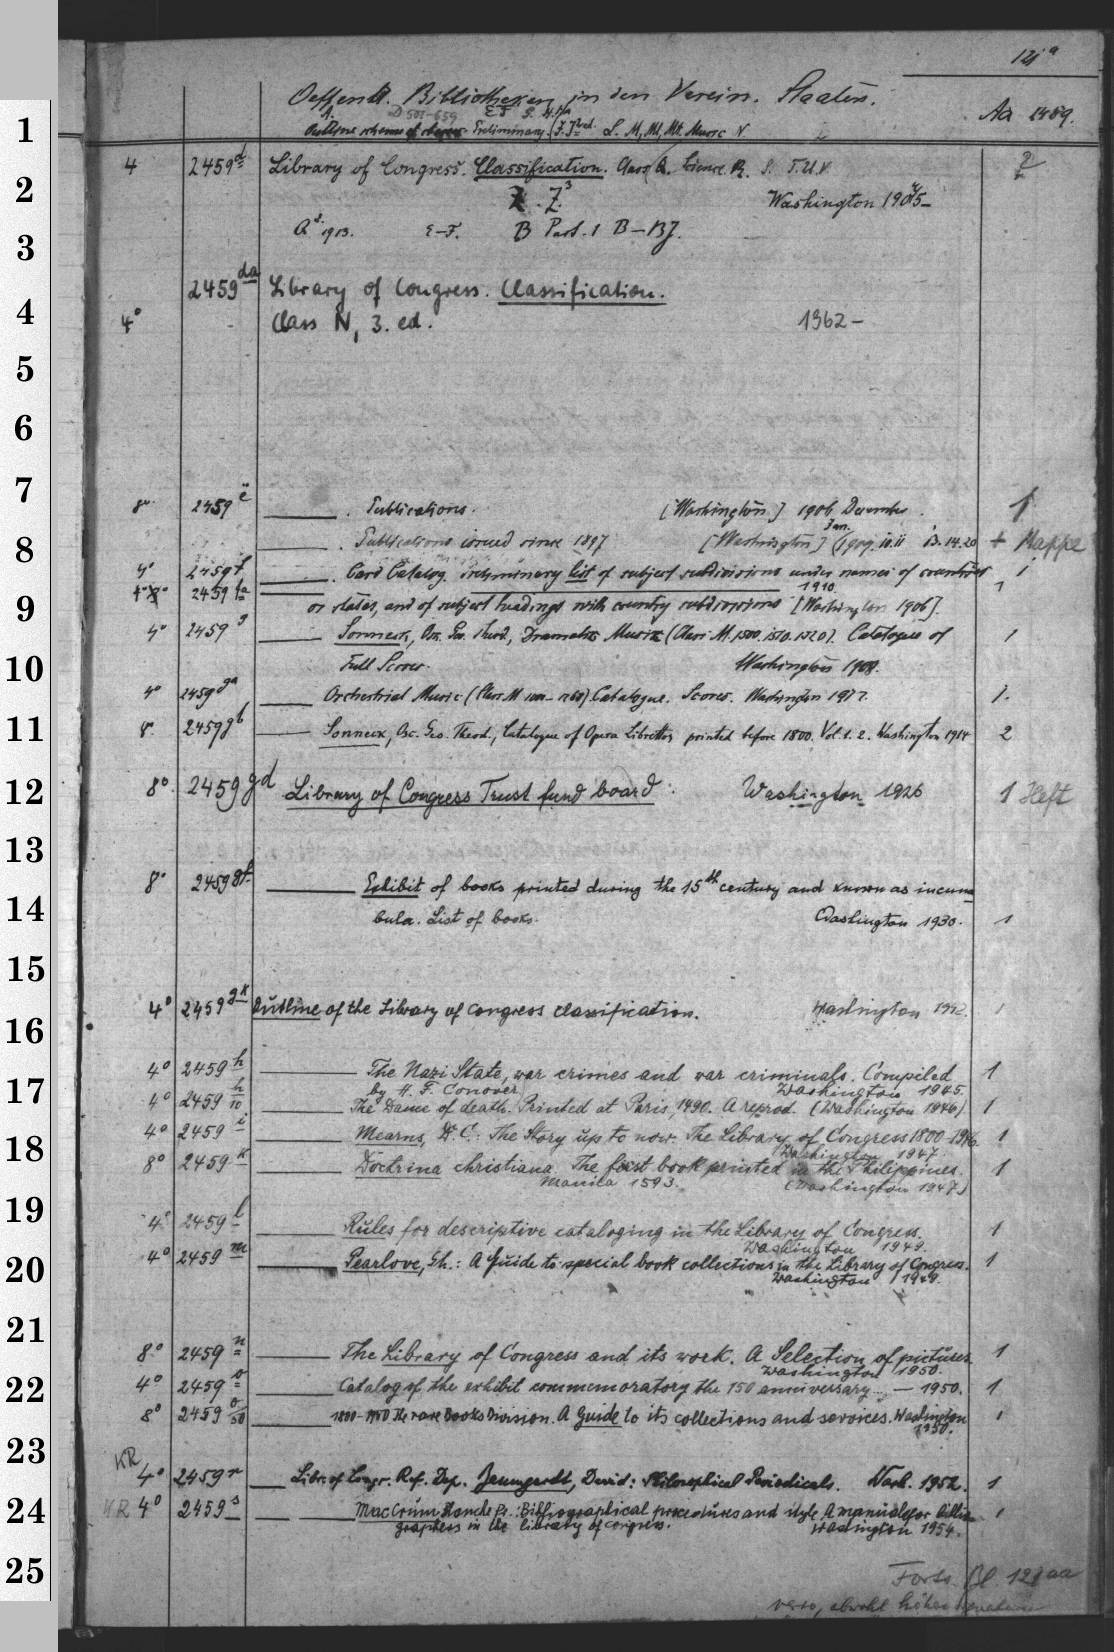 121a
Oeffentl. Bibliotheken in den Verein. Staaten.
Aa 2459.
1
Outline scheme of classes Preliminary L. M, Ml, Mt. Music N
4 2459d Library of Congress. Classification. Class A. Science R. S. T. U. V
2
Z. Z3 Washington 1905-
A 1913. E-F. B Part. 1 B-BJ.
3
2459da Library of Congress. Classification.
4
4° Class N, 3. ed. 1962-
5
6
7
8° 2459e . Publications. [Washington] 1906 December. 1
8
. Publications issued since 1897 [Washington] Jan. 1909. 10. 11 13. 14. 20 + Mappe
4° 2459f . Card Catalog. Preliminary list of subject subdivisions under names of countries 1
9
2459fa 1910. 1
or states, and of subject headings with country subdivisions [Washington 1906].
4° 2459g Sonneck, Osc. Geo. Theod., Dramatic Music (Class M. 1500. 1510. 1520). Catalogue of 1
10
Full Scores. Washington 1908.
4° 2459ga Orchestrial Music (Class M Catalogue. Scores. Washington 1917. 1.
11
8° 2459gb Sonneck, Osc. Geo. Theod., Catalogue of Opera Librettos printed before 1800. Vol 1. 2. Washington 1914 2
12
8° 2459gd Library of Congress Trust fund board. Washington 1926 1 Heft
13
8° 2459gf Exhibit of books printed during the 15th century and known as incuna
14
bula. List of books. Washington 1930. 1
15
4° 2459gk Outline of the Library of Congress classification. Washington 1942. 1
16
4° 2459h The Nazi State, war crimes and war criminals. Compiled 1
17
by H. F. Conover Washington 1945.
4° 2459h/10 The Dance of death. Printed at Paris 1490. A reprod. (Washington 1946) 1
4° 2459i Mearns, D. C.: The Story up to now. The Library of Congress 1800-1946. 1
18
Washington 1947.
8° 2459k Doctrina christiana. The first book printed in the Philippines. 1
Manila 1593. (Washington 1947)
19
4° 2459l Rules for descriptive cataloging in the Library of Congress. 1
Washington 1949.
4° 2459m Pearlove, Sh.: A Guide to special book collections in the Library of Congress. 1
20
Washington 1949.
21
8° 2459n The Library of Congress and its work. A Selection of pictures. 1
Washington 1950.
22
4° 2459o Catalog of the exhibit commemoratory the 150 anniversary... — 1950. 1
8° 2459o/50 1800-1950 The rare Books Division. A Guide to its collections and services. Washington 1
1950.
23
KR
4° 2459r Libr. of Congr. Ref. Dep. Baumgardt, David: Philosophical Periodicals. Wash. 1952. 1
24
KR 4° 2459s MacCrum, Blanche Pr.: Bibliographical procedures and style. A manual for biblio- 1
graphers in the library of congress. Washington 1954.
25
Forts. Bl. 121aa
verso, obwohl höhere